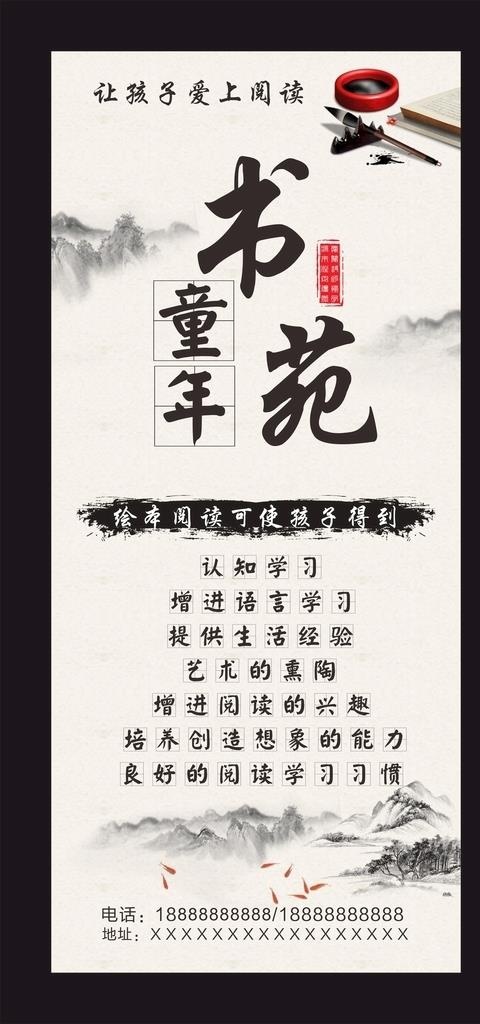 让孩子爱上阅读
书苑
童年
绘本阅读可使孩子得到
认知学习
增进语言学习
提供生活经验
艺术的熏陶
增进阅读的兴趣
培养创造想象的能力
良好的阅读学习习惯
电话：18888888888/18888888888
地址：XXXXXXXXXXXXXXXXX